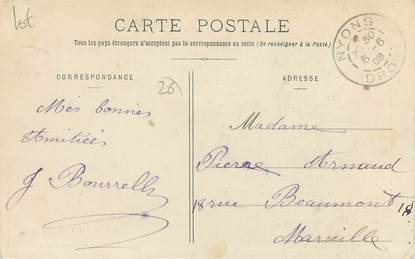 Lot
CARTE POSTALE
Tous les pays étrangers n'acceptent pas la correspondance au recto (Se renseigner à la Poste)
NYONS
DROME
CORRESPONDANCE
26
ADRESSE
Mes bonnes
Amitiées
J Bourrelly
Madame
Pierre Arnaud
18 rue Beaumont 18
Marseille